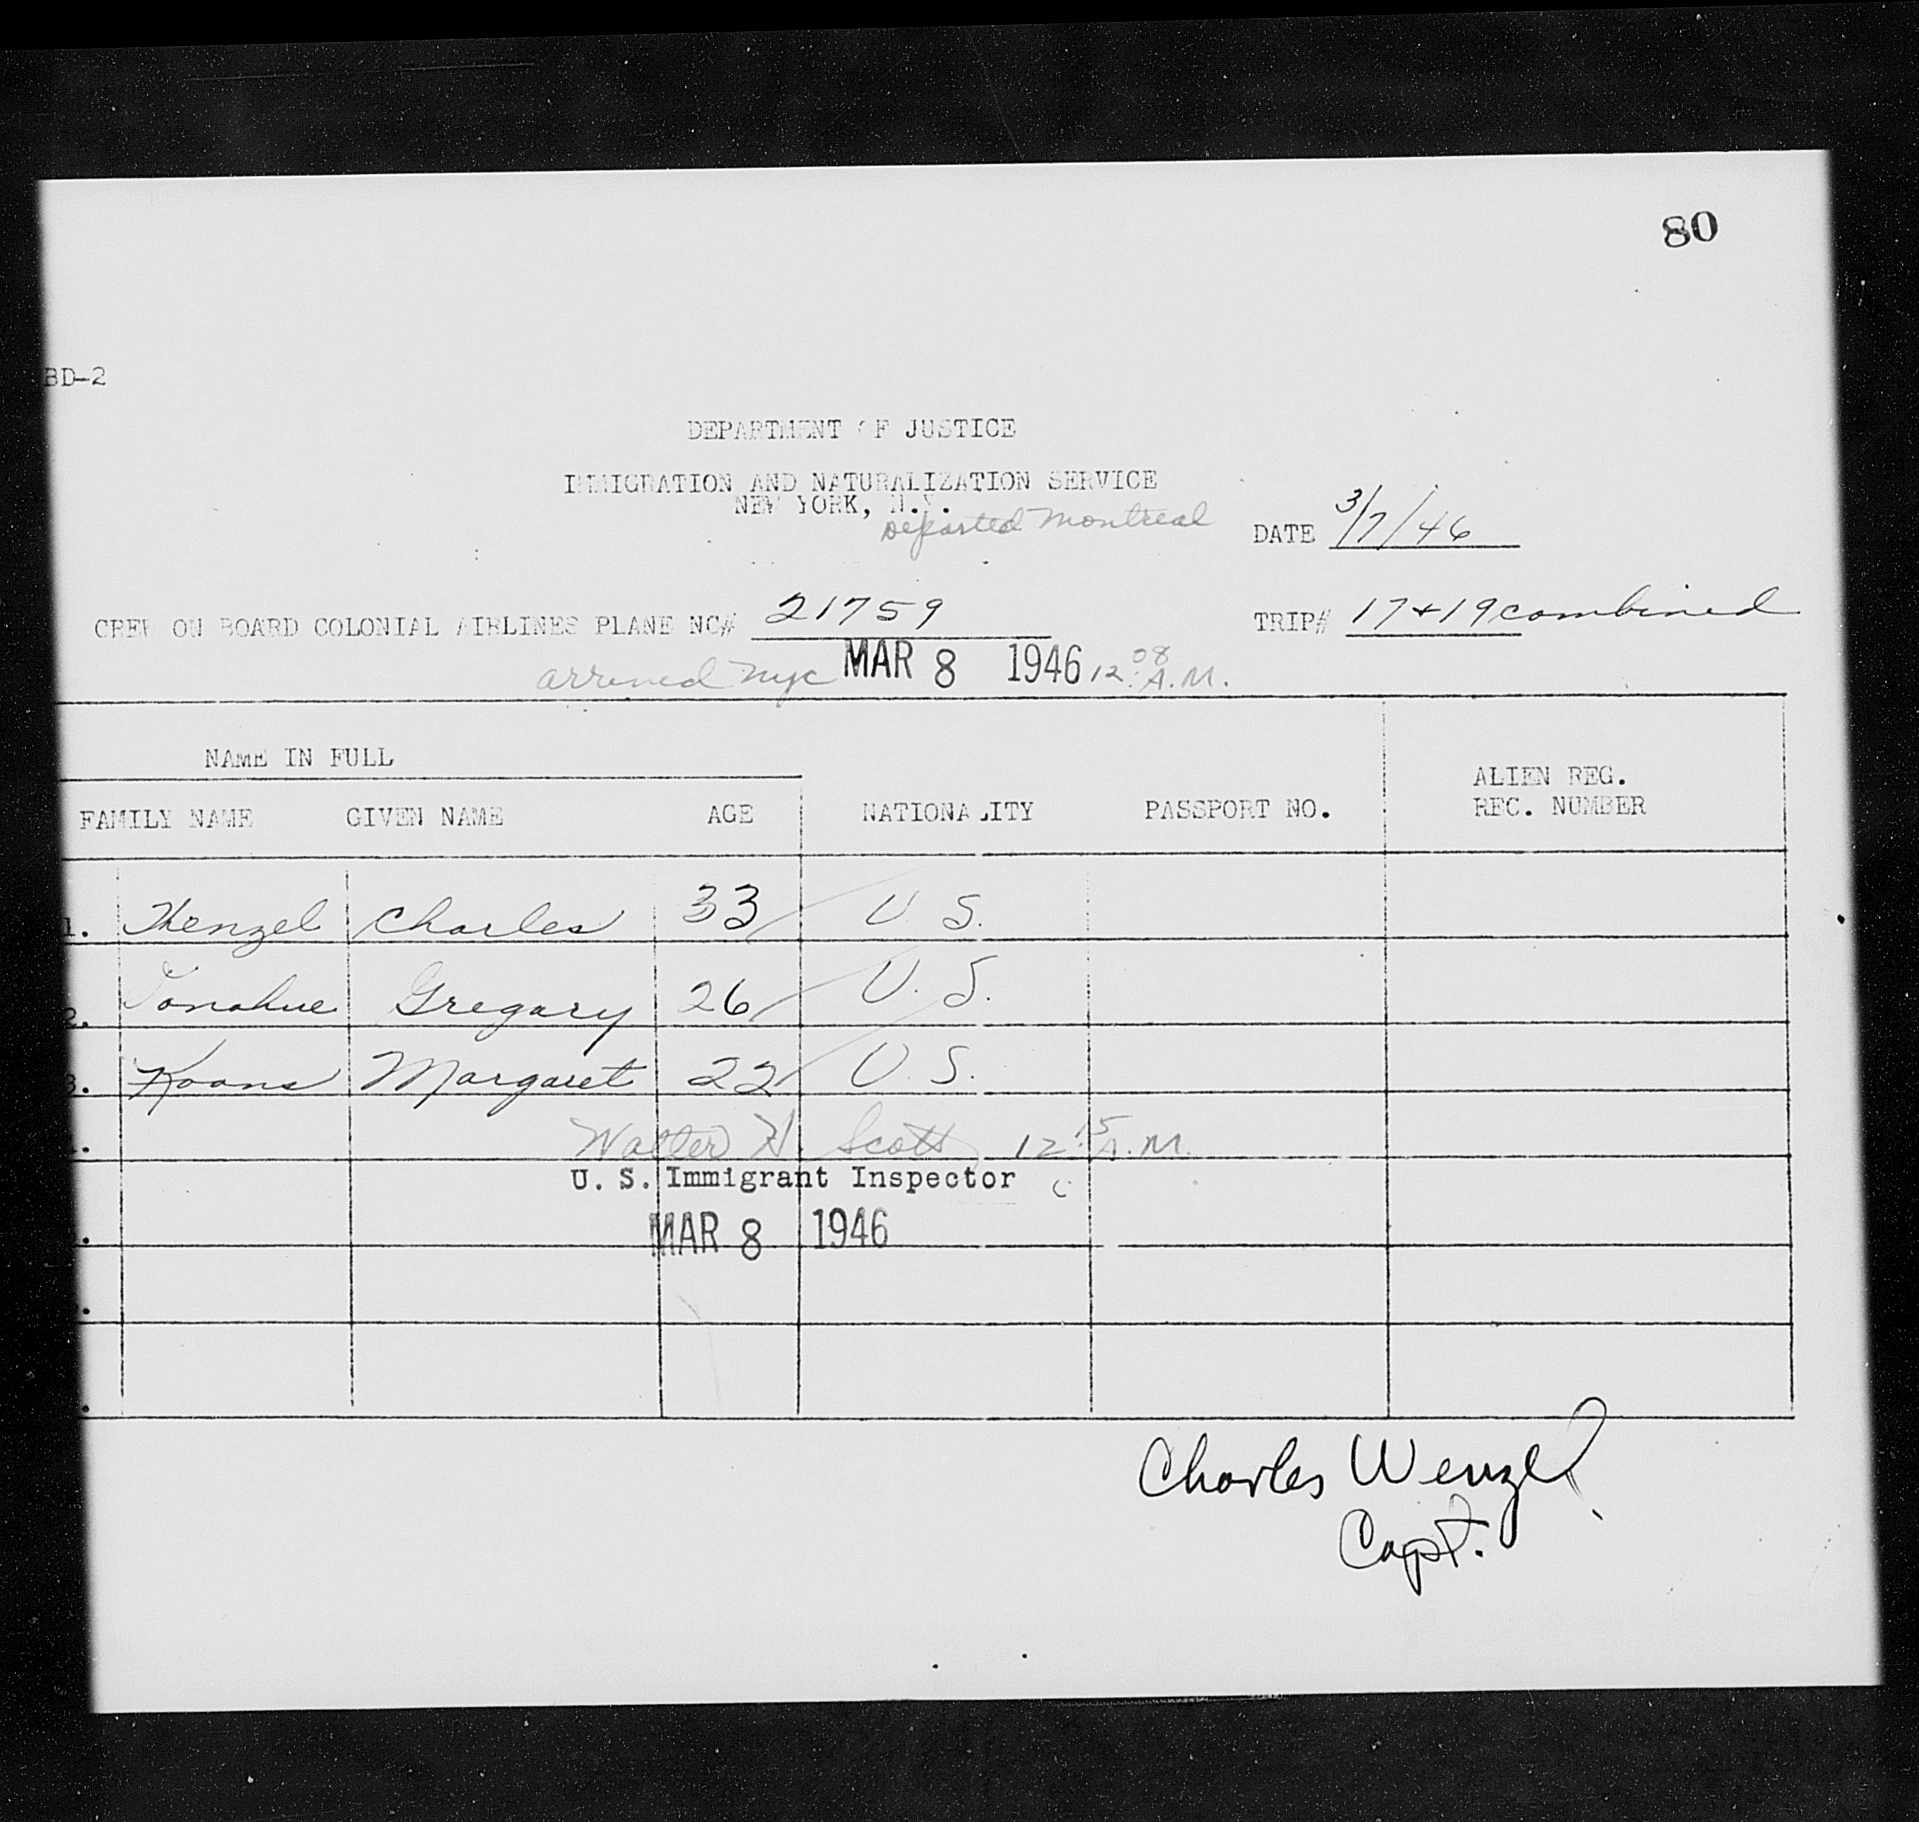 80
BD-2
DEPARTMENT OF JUSTICE
IMMIGRATION AND NATURALIZATION SERVICE
NEW YORK, N.Y.
Departed Montreal
DATE 3/7/46
CREW ON BOARD COLONIAL AIRLINES PLANE NC# 21759 TRIP# 17 + 19 combined
arrived NYC MAR 8 1946 12:08 A.M.
NAME IN FULL
FAMILY NAME GIVEN NAME AGE NATIONALITY PASSPORT NO. ALIEN REG. REC. NUMBER
1. Wenzel Charles 33 U.S.
2. Donahue Gregory 26 U.S.
3. Koons Margaret 22 U.S.
4. Walter H. Scott 12:15 A.M.
U. S. Immigrant Inspector
MAR 8 1946
Charles Wenzel
Capt.